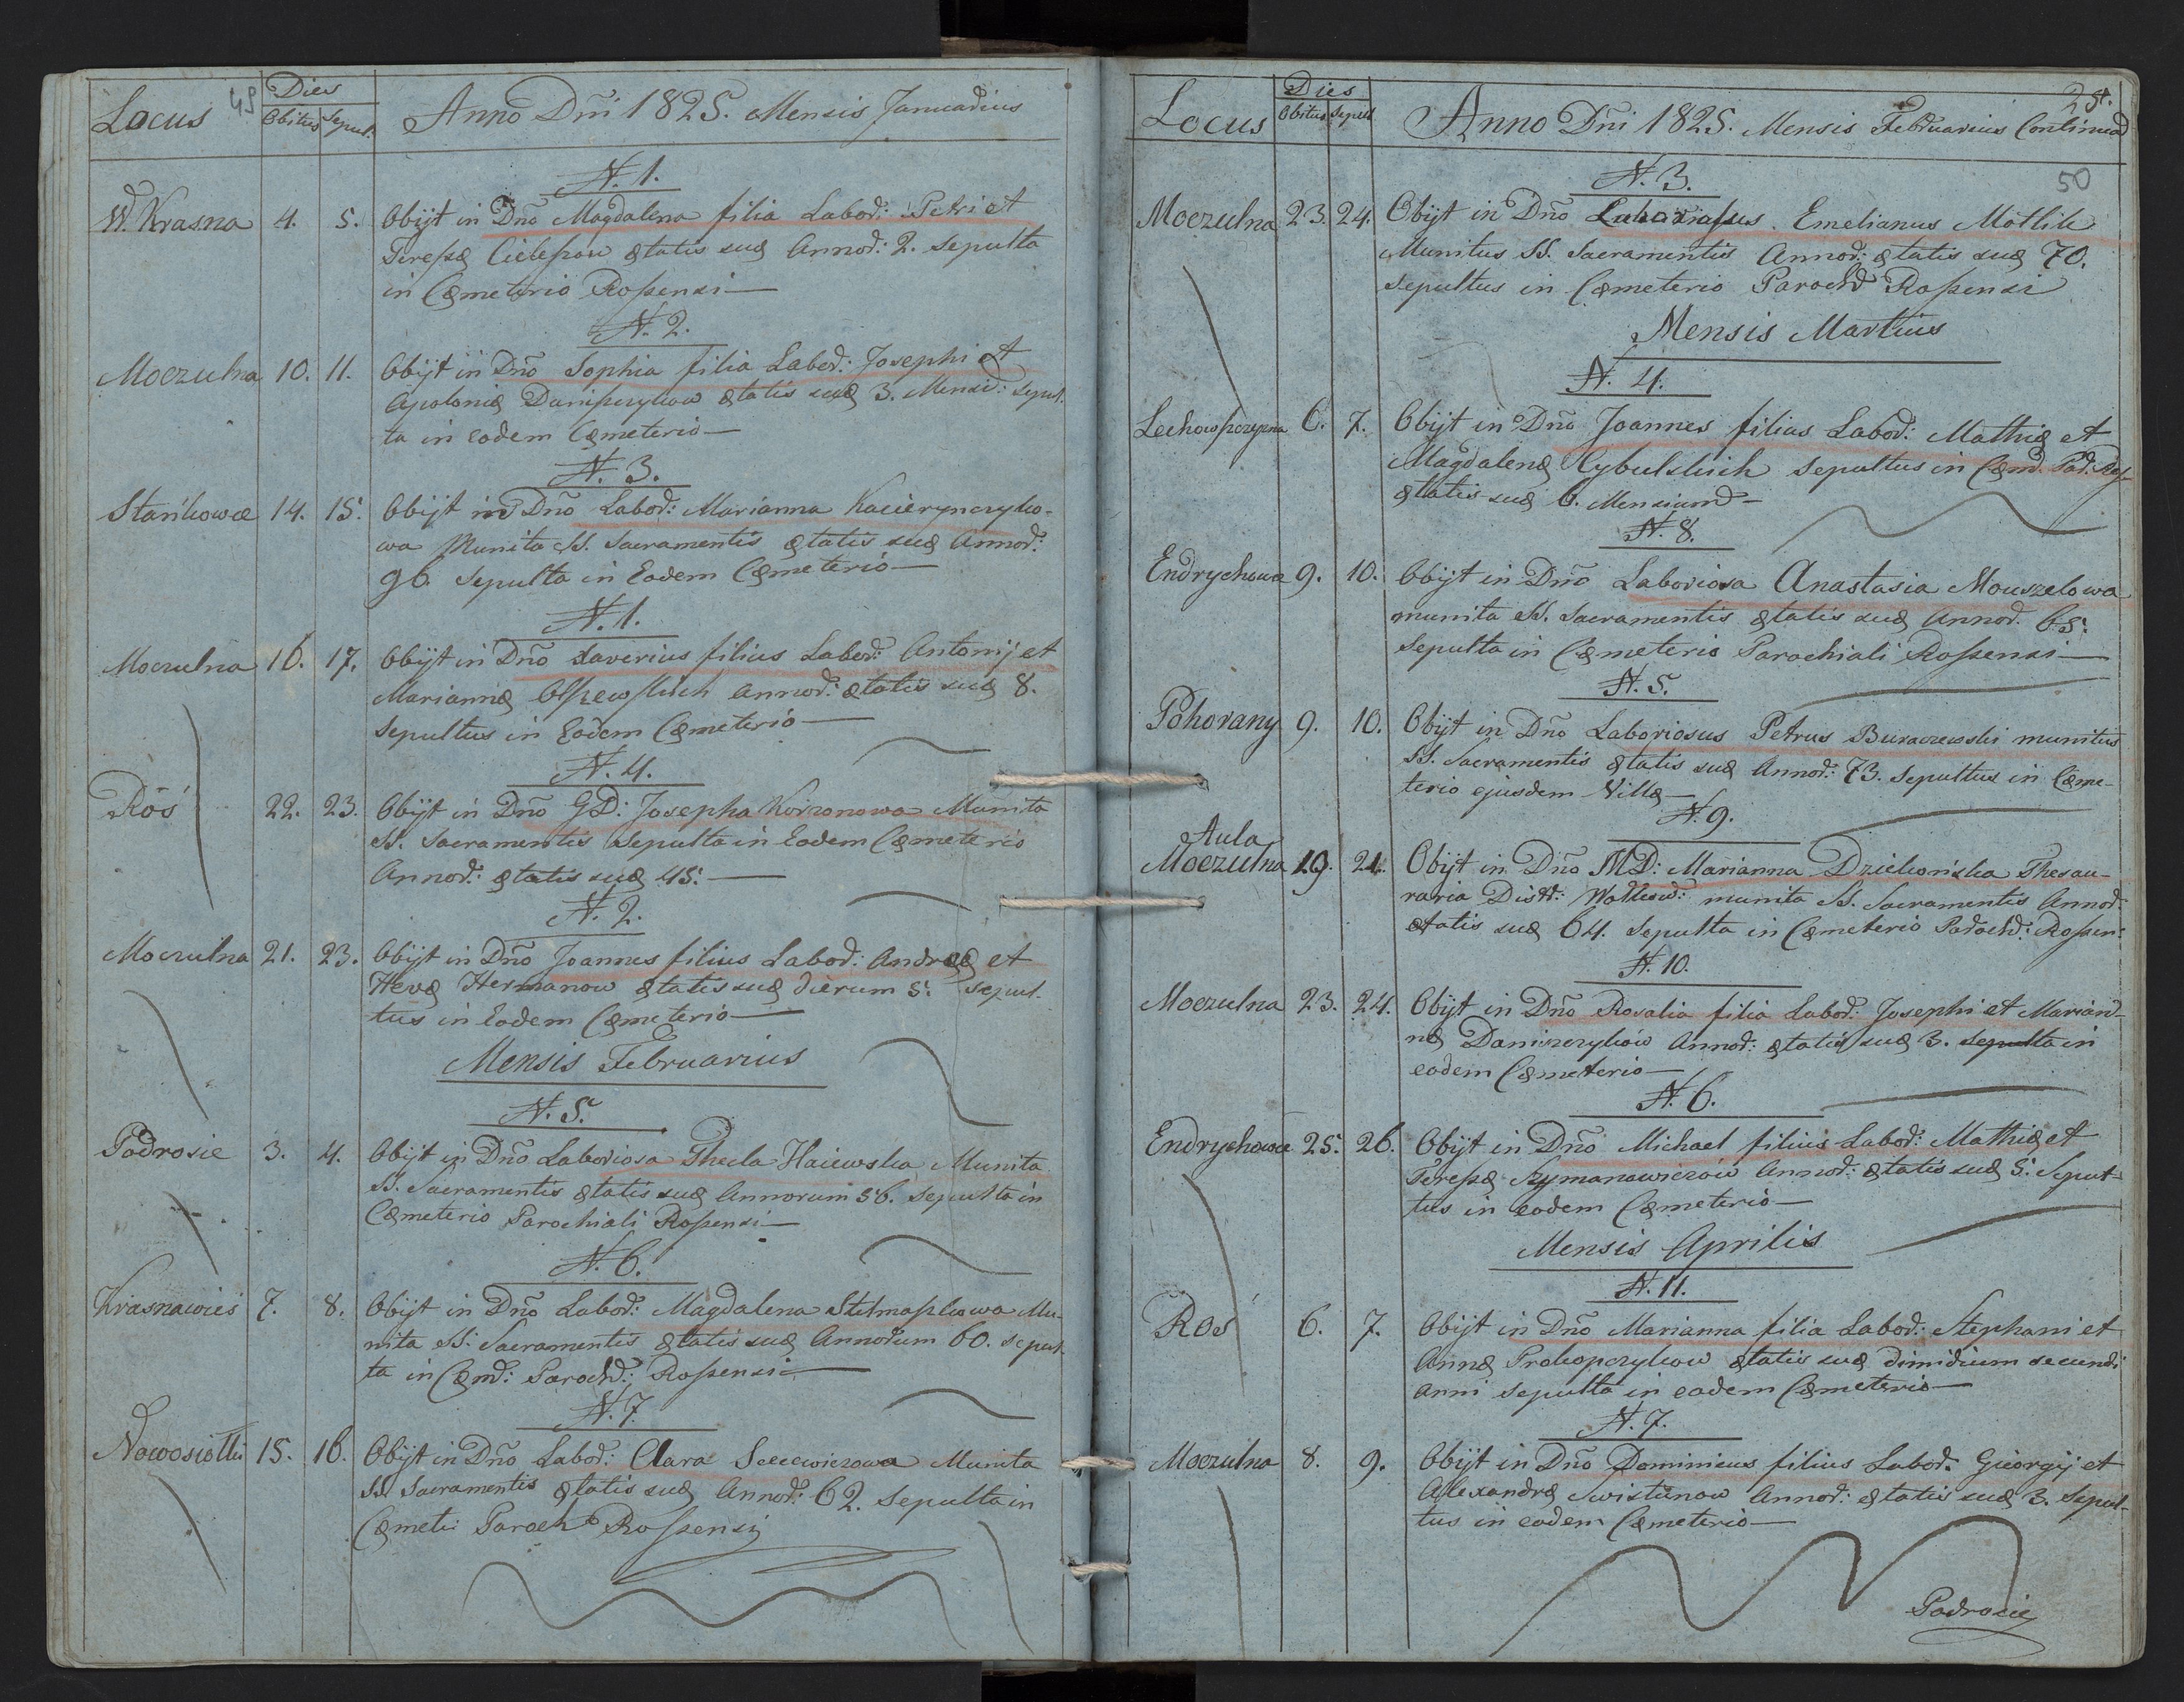 Locus 49 Dies Obitus Sepul. Anno Dñi 1825. Mensis Januarius
N. 1.
W. Krasna 4. 5. Obijt in Dño Magdalena filia Labor: Petri et
Tereſsę Cieleſzow ętatis suę Annor: 2. Sepulta
in Cęmeterio Roſsensi
N. 2.
Moczulna 10. 11. Obijt in Dño Sophia filia Labor: Josephi et
Apolonię Daniſzczykow ętatis suę 3. Mensiu: Sepul-
ta in eodem Cęmeterio
N. 3.
Stańkowce 14. 15. Obijt in Dño Labor: Marianna Kacierynczyko-
wa Munita SS. Sacramentis ętatis suę Annor:
96. Sepulta in Eodem Cęmeterio
N. 1.
Moczulna 16. 17. Obijt in Dño Xaverius filius Labor: Antonij et
Mariannę Olſzewſkich Annor: ętatis suę 8.
Sepultus in Eodem Cęmeterio
N. 4.
Roś 22. 23. Obijt in Dño GD: Josepha Munita
SS. Sacramentis Sepulta in Eodem Cęmeterio
Annor: ętatis suę 45.
N. 2.
Moczulna 21. 23. Obijt in Dño Joannes filius Labor: Andreę et
Hevę Hermanow ętatis suę dierum 5. Sepul-
tus in Eodem Cęmeterio
Mensis Februarius
N. 5.
Podrosie 3. 4. Obijt in Dño Laboriosa Thecla Haiewska Munita
SS. Sacramentis ętatis suę Annorum 56. Sepulta in
Cęmeterio Parochiali Roſsensi
N. 6.
Krasnawieś 7. 8. Obijt in Dño Labor: Magdalena Stelmaſzkowa Mu-
nita SS. Sacramentis ętatis suę Annorum 60. Sepul-
ta in Cęm: Paroch: Roſsensi
N. 7.
Nowosiołki 15. 16. Obijt in Dño Labor: Clara Munita
SS. Sacramentis ętatis suę Annor: 62. Sepulta in
Cęmet: Paroch Roſsensi
Locus Dies Obitus Sepul Anno Dñi 1825. Mensis Februarius Continuad 25.
50
N. 3.
Moczulna 23. 24. Obijt in Dño Laboriosus Emelianus Motlik
Munitus SS. Sacramentis Annor: ętatis suę 70.
Sepultus in Cęmeterio Paroch Roſsensi
Mensis Martius
N. 4.
Lechowſzczyzna 6. 7. Obijt in Dño Joannes filius Labor: Mathię et
Magdalenę Cybulskich Sepultus in Cęm. Par. Roſ-
ętatis suę 6. Mensium
N. 8.
Endrychowce 9. 10. Obijt in Dño Laboriosa Anastasia Mouszelowa
munita SS. Sacramentis ętatis suę Annor. 65.
Sepulta in Cęmeterio Parochiali Roſsensi
N. 5.
Pohorany 9. 10. Obijt in Dño Laboriosus Petrus Buraczewski munitus
SS. Sacramentis ętatis suę Annor: 73. Sepultus in Cęme-
terio ejusdem Villę
N. 9.
Aula
Moczulna 19. 21. Obijt in Dño MD: Marianna Dziekońska Thesau-
raria Distr: Wołkow: munita SS. Sacramentis Annor:
ętatis suę 64. Sepulta in Cęmeterio Paroch: Roſsen:
N. 10.
Moczulna 23. 24. Obijt in Dño Rosalia filia Labor: Josephi et Marian-
nę Daniszczyków Annor: ętatis suę 3. Sepulta in
eodem Cęmeterio
N. 6.
Endrychowce 25. 26. Obijt in Dño Michael filius Labor: Mathię et
Tereſsę Szymanowiczów Annor: ętatis suę 5. Sepul-
tus in eodem Cęmeterio
Mensis Aprilis
N. 11.
Roś 6. 7. Obijt in Dño Marianna filia Labor: Stephani et
Annę Prokopczykow ętatis suę dimidium secundi
anni Sepulta in eodem Cęmeterio
N. 7.
Moczulna 8. 9. Obijt in Dño Dominicus filius Labor: Georgij et
Alexandrę Swistunow Annor: ętatis suę 3. Sepul-
tus in eodem Cęmeterio
Podrosie